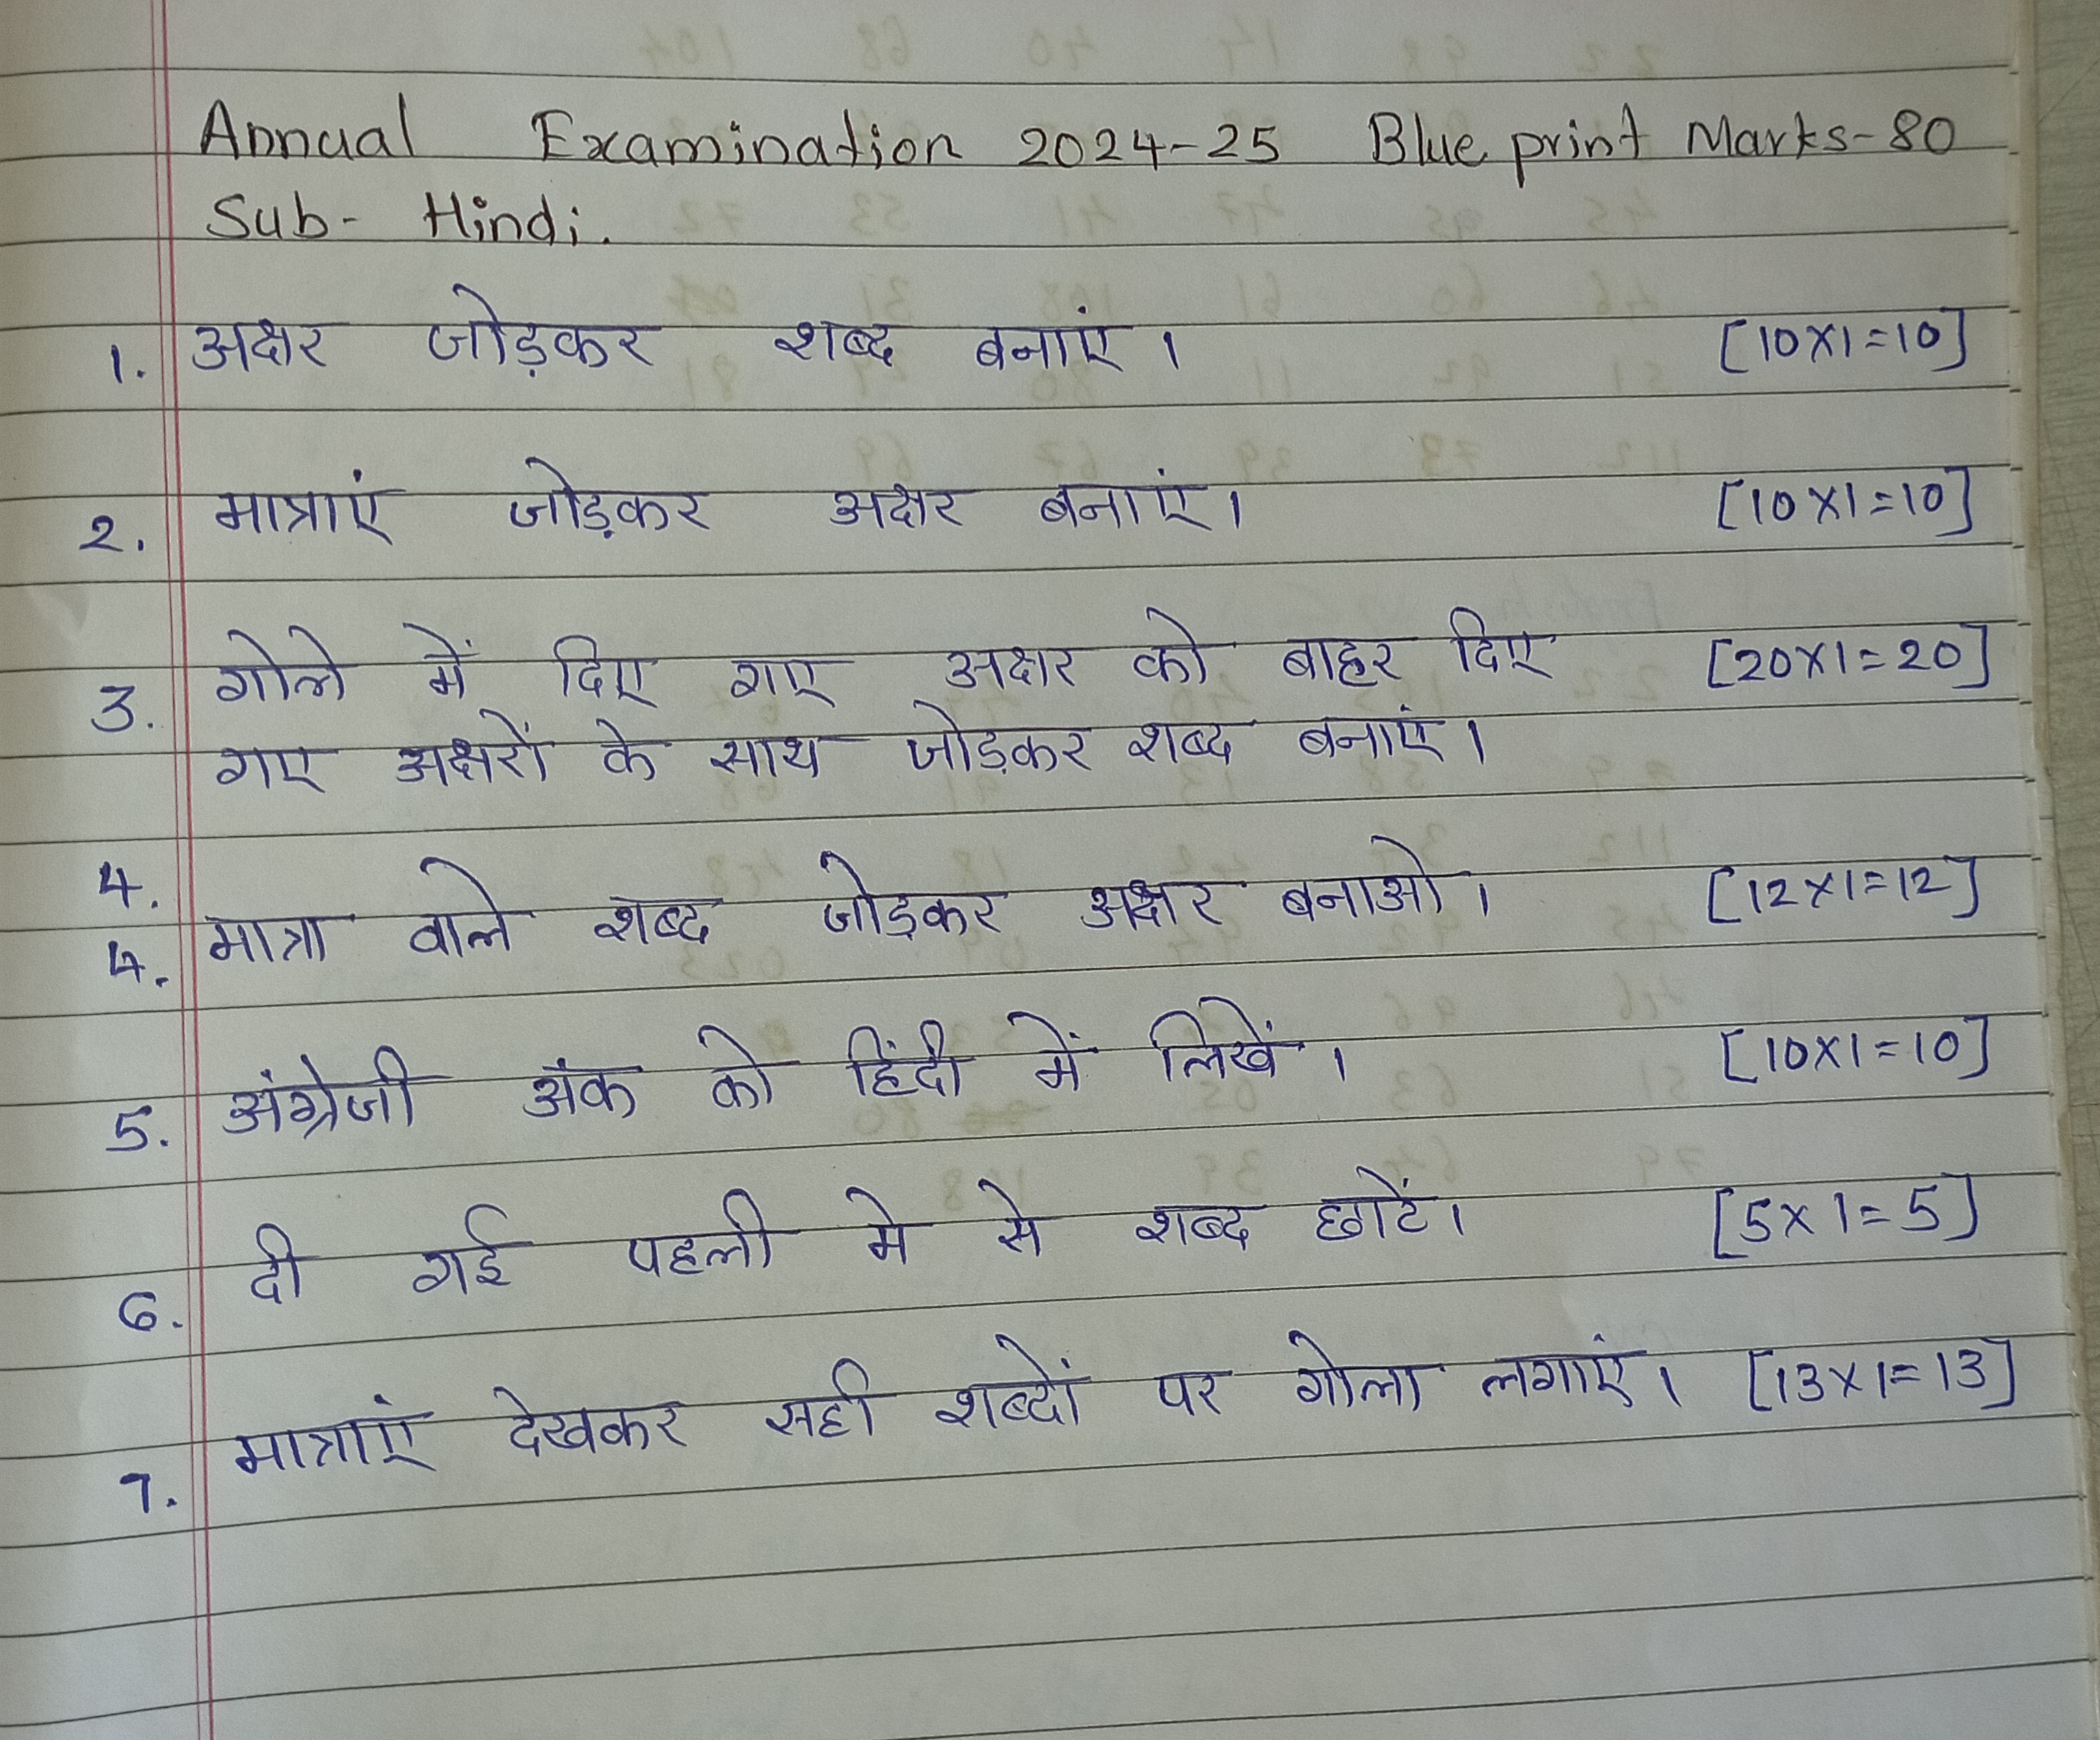 Annual Examination 2024-25 Blue print Marks-80
Sub- Hindi.
1. अक्षर जोड़कर शब्द बनाएं। [10X1=10]
2. मात्राएं जोड़कर अक्षर बनाएं। [10X1=10]
3. गोले में दिए गए अक्षर को बाहर दिए [20X1=20]
गए अक्षरों के साथ जोड़कर शब्द बनाएं।
4.
4. मात्रा वाले शब्द जोड़कर अक्षर बनाओ। [12X1=12]
5. अंग्रेजी अंक को हिंदी में लिखें। [10X1=10]
6. दी गई पहली मे से शब्द छाटें। [5X1=5]
7. मात्राएं देखकर सही शब्दों पर गोला लगाएं। [13X1=13]